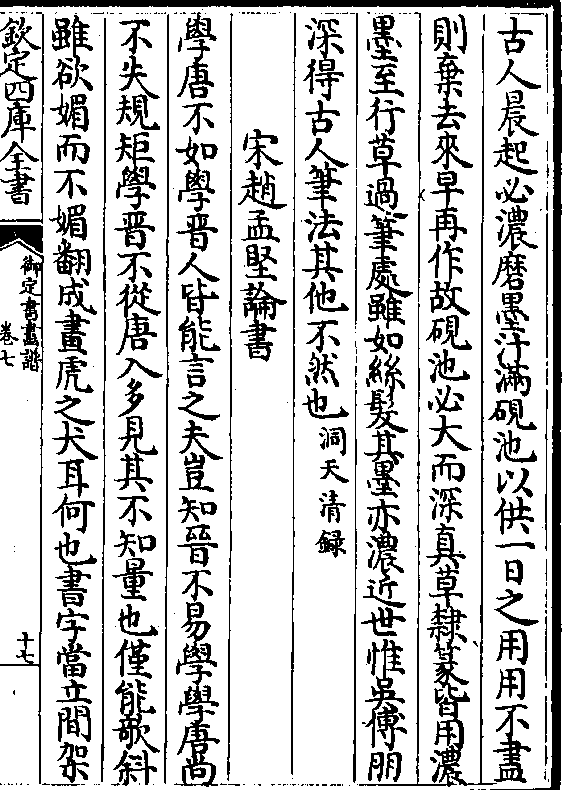 古人晨起必濃磨墨汁滿硯池以供一日之用用不盡
則棄去來早再作故硯池必大而深真草隸篆皆用濃
墨至行草過筆處雖如絲髮其墨亦濃近世惟吳傅朋
深得古人筆法其他不然也洞天清録
宋趙孟堅論書
學唐不如學晋人皆能言之夫豈知晉不易學學唐尚
不失規矩學晋不從唐入多見其不知量也僅能欹斜
雖欲媚而不媚翻成畫虎之犬耳何也書字當立間架
欽定四庫全書
御定書畫譜
卷七
十七